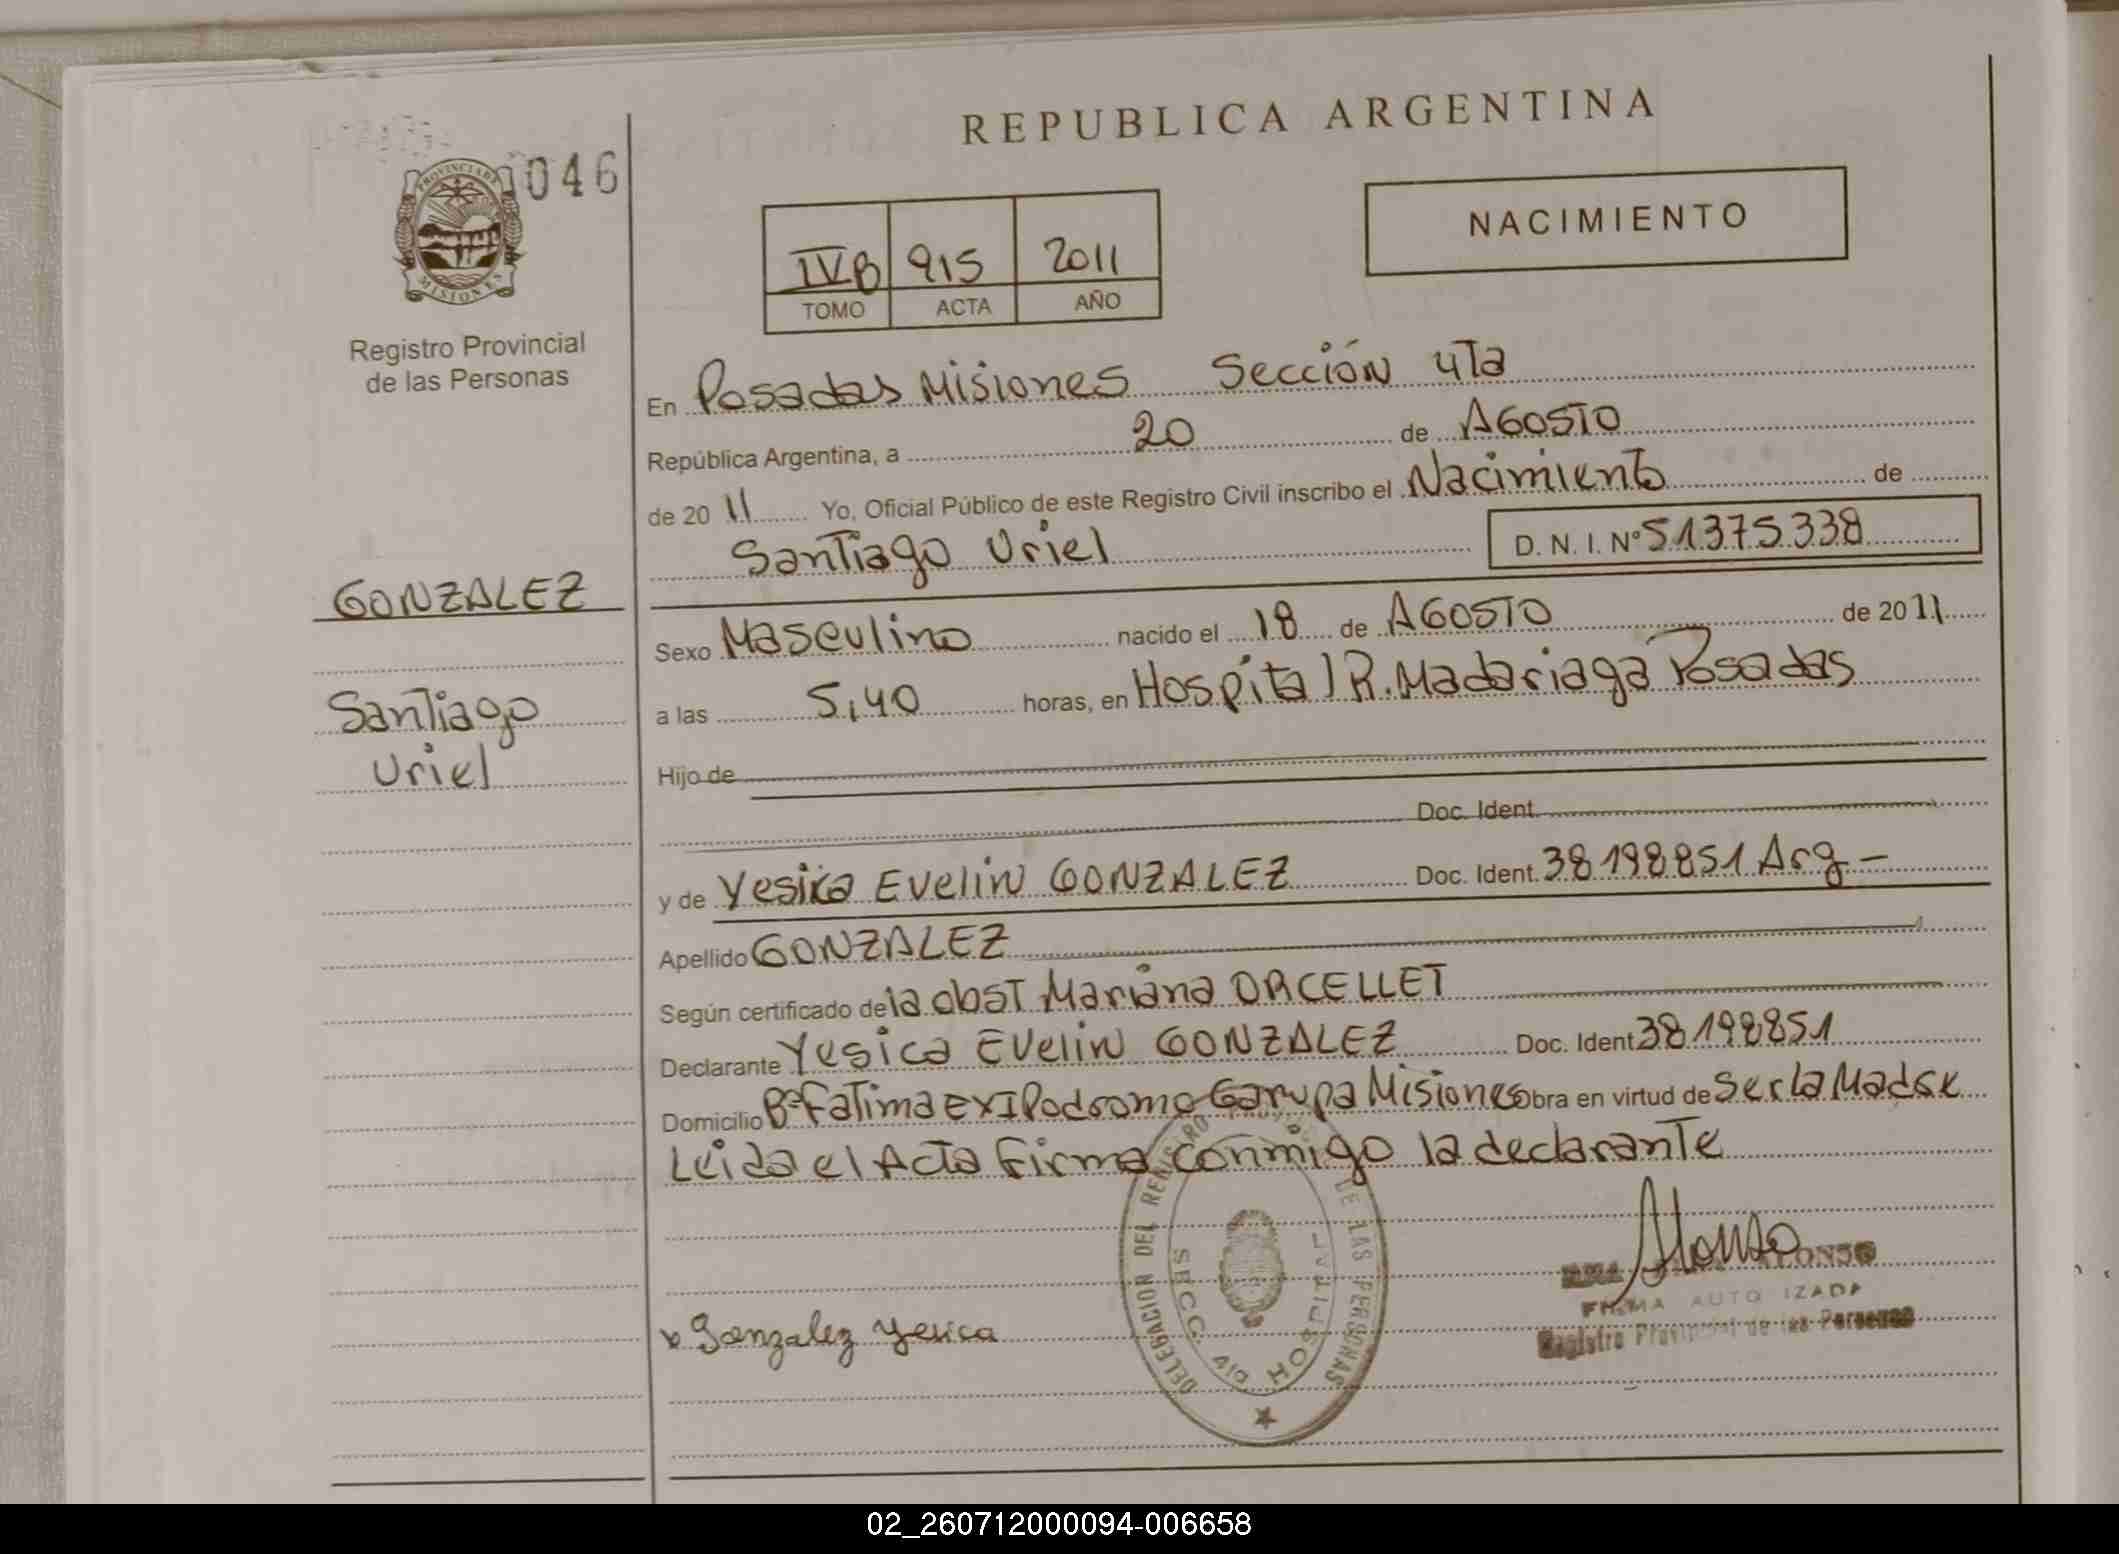 REPUBLICA ARGENTINA
046
PROVINCIA DE
MISIONES
Registro Provincial
de las Personas
NACIMIENTO
IVB 915 2011
TOMO ACTA AÑO
En Posadas Misiones Sección 4Ta
República Argentina, a 20 de AGOSTO
de 2011 Yo, Oficial Público de este Registro Civil inscribo el Nacimiento de
Santiago Uriel D. N. I. Nº 51375338
GONZALEZ
Santiago
Uriel
Sexo Masculino nacido el 18 de AGOSTO de 2011
a las 5,40 horas, en Hospital R. Madariaga Posadas
Hijo de
Doc. Ident.
y de Yesica Evelin GONZALEZ Doc. Ident. 38198851 Arg -
Apellido GONZALEZ
Según certificado de la obst Mariana ORCELLET
Declarante Yesica Evelin GONZALEZ Doc. Ident 38198851
Domicilio Bº Fatima Ex IPodromo Garupa Misiones Obra en virtud de Ser la Madre
Leida el Acta Firma conmigo la declarante
DELEGACION DEL REGISTRO DE LAS PERSONAS
SECC. 4ta HOSPITAL
Alonso
ALONSO
FIRMA AUTORIZADA
Registro Provincial de las Personas
Gonzalez Yesica
02_260712000094-006658